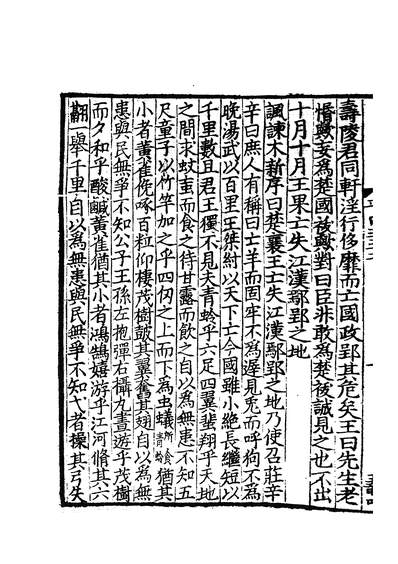 壽陵君同軒淫行侈靡而亡國政郢其危矣王曰先生老
惛歟妄爲楚國祅歟對曰臣非敢爲楚祅誠見之也不出
十月十月王果亡失江漢鄢郢之地
諷諫木新序曰楚襄王亡失江漢鄢郢之地乃使召莊辛
辛曰庶人有稱曰亡羊而固牢不爲遲見兎而呼狗不爲
晚湯武以百里王桀紂以天下亡今國雖小絶長繼短以
千里數且君王獨不見夫青蛉乎六足四翼蜚翔乎天地
之間求蚊䖟而食之待甘露而飲之自以爲無患不知五
尺童子以竹竿加之乎四仞之上而下爲虫蟻所食青蛉猶其
小者黃雀俛啄百粒仰棲茂樹鼓其翼奮其翅自以爲無
患與民無爭不知公子王孫左抱彈右攝丸晝遊乎茂樹
而夕和乎酸鹹黃雀猶其小者鴻鵠嬉游乎江河脩其六
翮一舉千里自以爲無患與民無爭不知弋者操其弓失